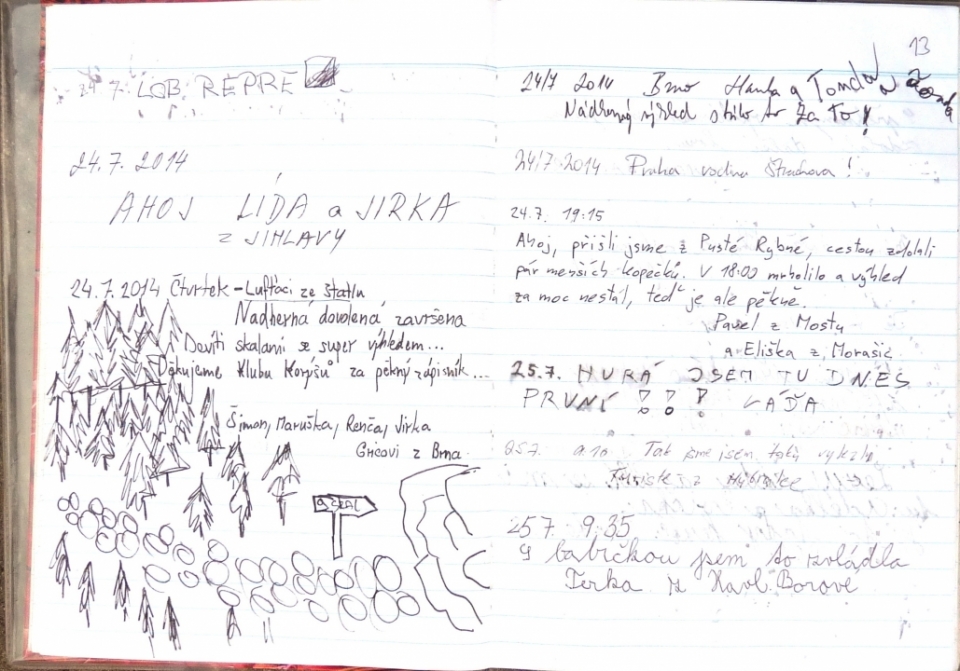 24.7. LOB. REPRE
24.7. 2014
AHOJ LÍDA a JIRKA
z JIHLAVY
24.7.2014 Čtvrtek - Lufťáci ze štatlu
Nádherná dovolená završena
Devíti skalami se super výhledem...
Děkujeme Klubu Korýšů za pěkný zápisník...
Šimon, Maruška, Renča, Jirka
z Brna
13
24/7 2014 Brno Hanka a Tomáš a
Nádherný výhled stálo to za to!
24/7 2014 Praha rodina Strachova!
24.7. 19:15
Ahoj, přišli jsme z Pusté Rybné, cestou zdolali
pár menších kopečků. V 18:00 mrholilo a výhled
za moc nestál, teď je ale pěkně.
Pavel z Mostu
a Eliška z Morašic
25.7. HURÁ JSEM TU DNES
PRVNÍ !!! LÁĎA
25.7. Tak jsme sem taky vylezli
Turisté z
25.7. 9:35
S babičkou jsem to zvládla
Terka z Havl. Borové